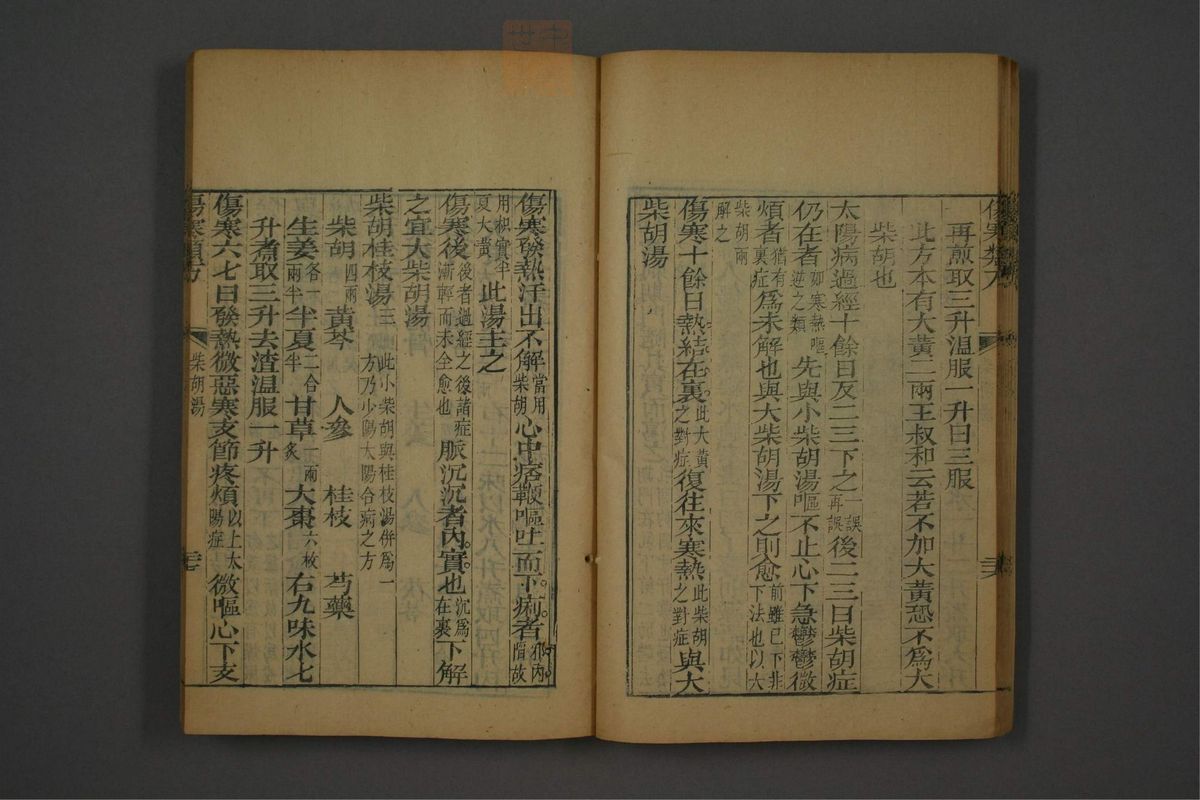 再煎取三升温服一升日三服
此方本有大黃二兩王叔和云若不加大黃恐不爲大
柴胡也
太陽病過經十餘日反二三下之一誤再誤後二三日柴胡症
仍在者如寒熱嘔逆之類先與小柴胡湯嘔不止心下急鬱鬱微
煩者猶有裏症爲未解也與大柴胡湯下之則愈前雖已下非下法也以大
柴胡兩解之
傷寒十餘日熱結在裏此大黃之對症復往來寒熱此柴胡之對症與大
柴胡湯
傷寒發熱汗出不解當用柴胡心中痞鞕嘔吐而下痢者邪內陷故
用枳實半夏大黃此湯主之
傷寒後後者過經之後諸症漸輕而未全愈也脈沉沉者內實也沉爲在裏下解
之宜大柴胡湯
柴胡桂枝湯三此小柴胡與桂枝湯併爲一方乃少陽太陽合病之方
柴胡四兩 黃芩 人參 桂枝 芍藥
生姜各一兩半半夏二合半甘草一兩炙大棗六枚右九味水七
升煮取三升去渣温服一升
傷寒六七日發熱微惡寒支節疼煩以上太陽症微嘔心下支
傷寒類方
柴胡湯